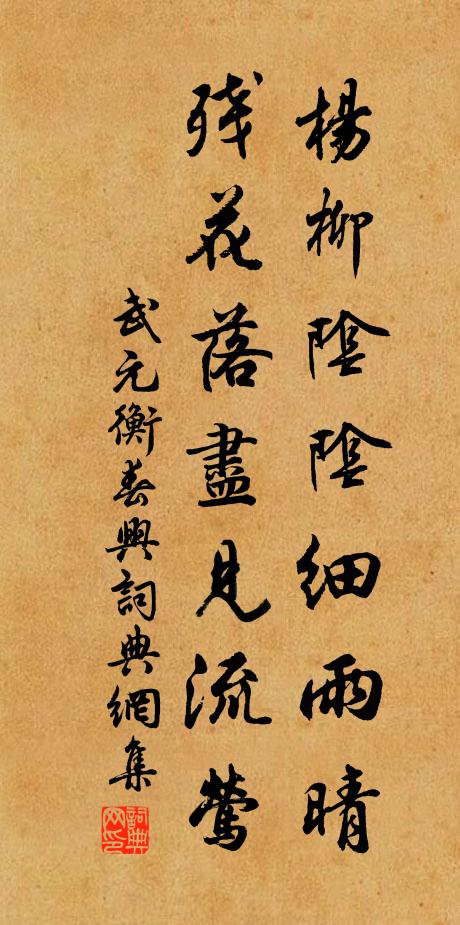 楊柳陰陰細雨晴
殘花落盡見流鶯
武元衡春興詞典網集
詞典网印